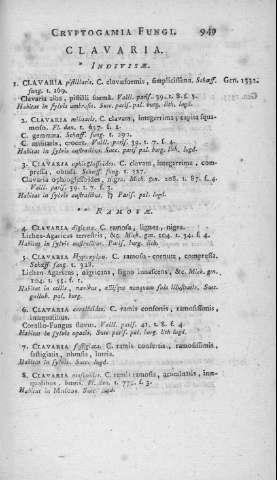 CRYPTOGAMIA FUNGI. 949
CLAVARIA.
* INDIVISÆ.
1. CLAVARIA pistillaris. C. clavæformis, simplicissima. Schæff. Gen. 1332.
fung. t. 169.
Clavaria alba, pistilli formâ. Vaill. paris. 39. t. 8. f. 5.
Habitat in sylvis umbrosis. Suec. paris. pal. burg. lith. lugd.
2. CLAVARIA militaris. C. clavata, integerrima; capite squa-
moso. Fl. dan. t. 657. f. 1.
C. gemmata. Schæff. fung. t. 290.
C. militaris, crocea. Vaill. paris. 39. t. 7. f. 4.
Habitat in sylvis australibus. Suec. paris pal. burg. lith. lugd.
3. CLAVARIA ophioglossoides. C. clavata, integerrima, com-
pressa, obtusa. Schæff. fung. t. 327.
Clavaria ophioglossoides, nigra. Mich. gen. 208. t. 87. f. 4.
Vaill. paris. 39. t. 7. f. 3.
Habitat in sylvis australibus. Paris. pal. lugd.
* * RAMOSÆ.
4. CLAVARIA digitata. C. ramosa, lignea, nigra.
Lichen-Agaricus terrestris, &c. Mich. gen. 104. t. 54. f. 4.
Habitat in australibus. Paris. burg. lith.
5. CLAVARIA Hypoxylon. C. ramoso-cornuta, compressa.
Schæff. fung. t. 328.
Lichen-Agaricus, nigricans, ligno innascens, &c. Mich. gen.
104. t. 55. f. 1.
Habitat in cellis, navibus, aliisque nunquam sole illustratis. Suec.
gallob. pal. burg.
6. CLAVARIA coralloides. C. ramis confertis, ramosissimis,
inæqualibus.
Corallo-Fungus flavus. Vaill. paris. 41. t. 8. f. 4.
Habitat in sylvis opacis. Suec. paris. pal. burg. lith. lugd.
7. CLAVARIA fastigiata. C. ramis confertis, ramosissimis,
fastigiatis, obtusis, luteis.
Habitat in sylvis. Suec. lugd.
8. CLAVARIA muscoides. C. ramis ramosis, acuminatis, inæ-
qualibus, luteis. Fl. dan. t. 775. f. 3.
Habitat in Muscis. Suec. lugd.